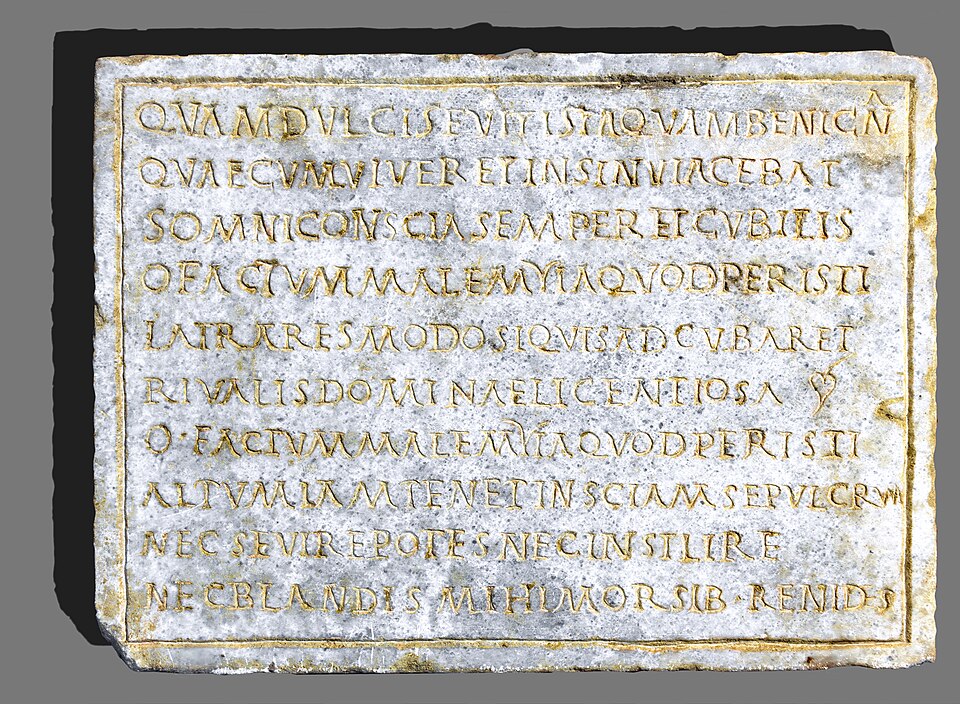 QVAM DVLCIS FVIT ISTA QVAM BENIGNA
QVAE CVM VIVERET IN SINV IACEBAT
SOMNI CONSCIA SEMPER ET CVBILIS
O FACTVM MALE MYIA QVOD PERISTI
LATRARES MODO SI QVIS ADCVBARET
RIVALIS DOMINAE LICENTIOSA ❦
O · FACTVM MALE MYIA QVOD PERISTI
ALTVM IAM TENET INSCIAM SEPVLCRVM
NEC SEVIRE POTES NEC INSILIRE
NEC BLANDIS MIHI MORSIB · RENIDES